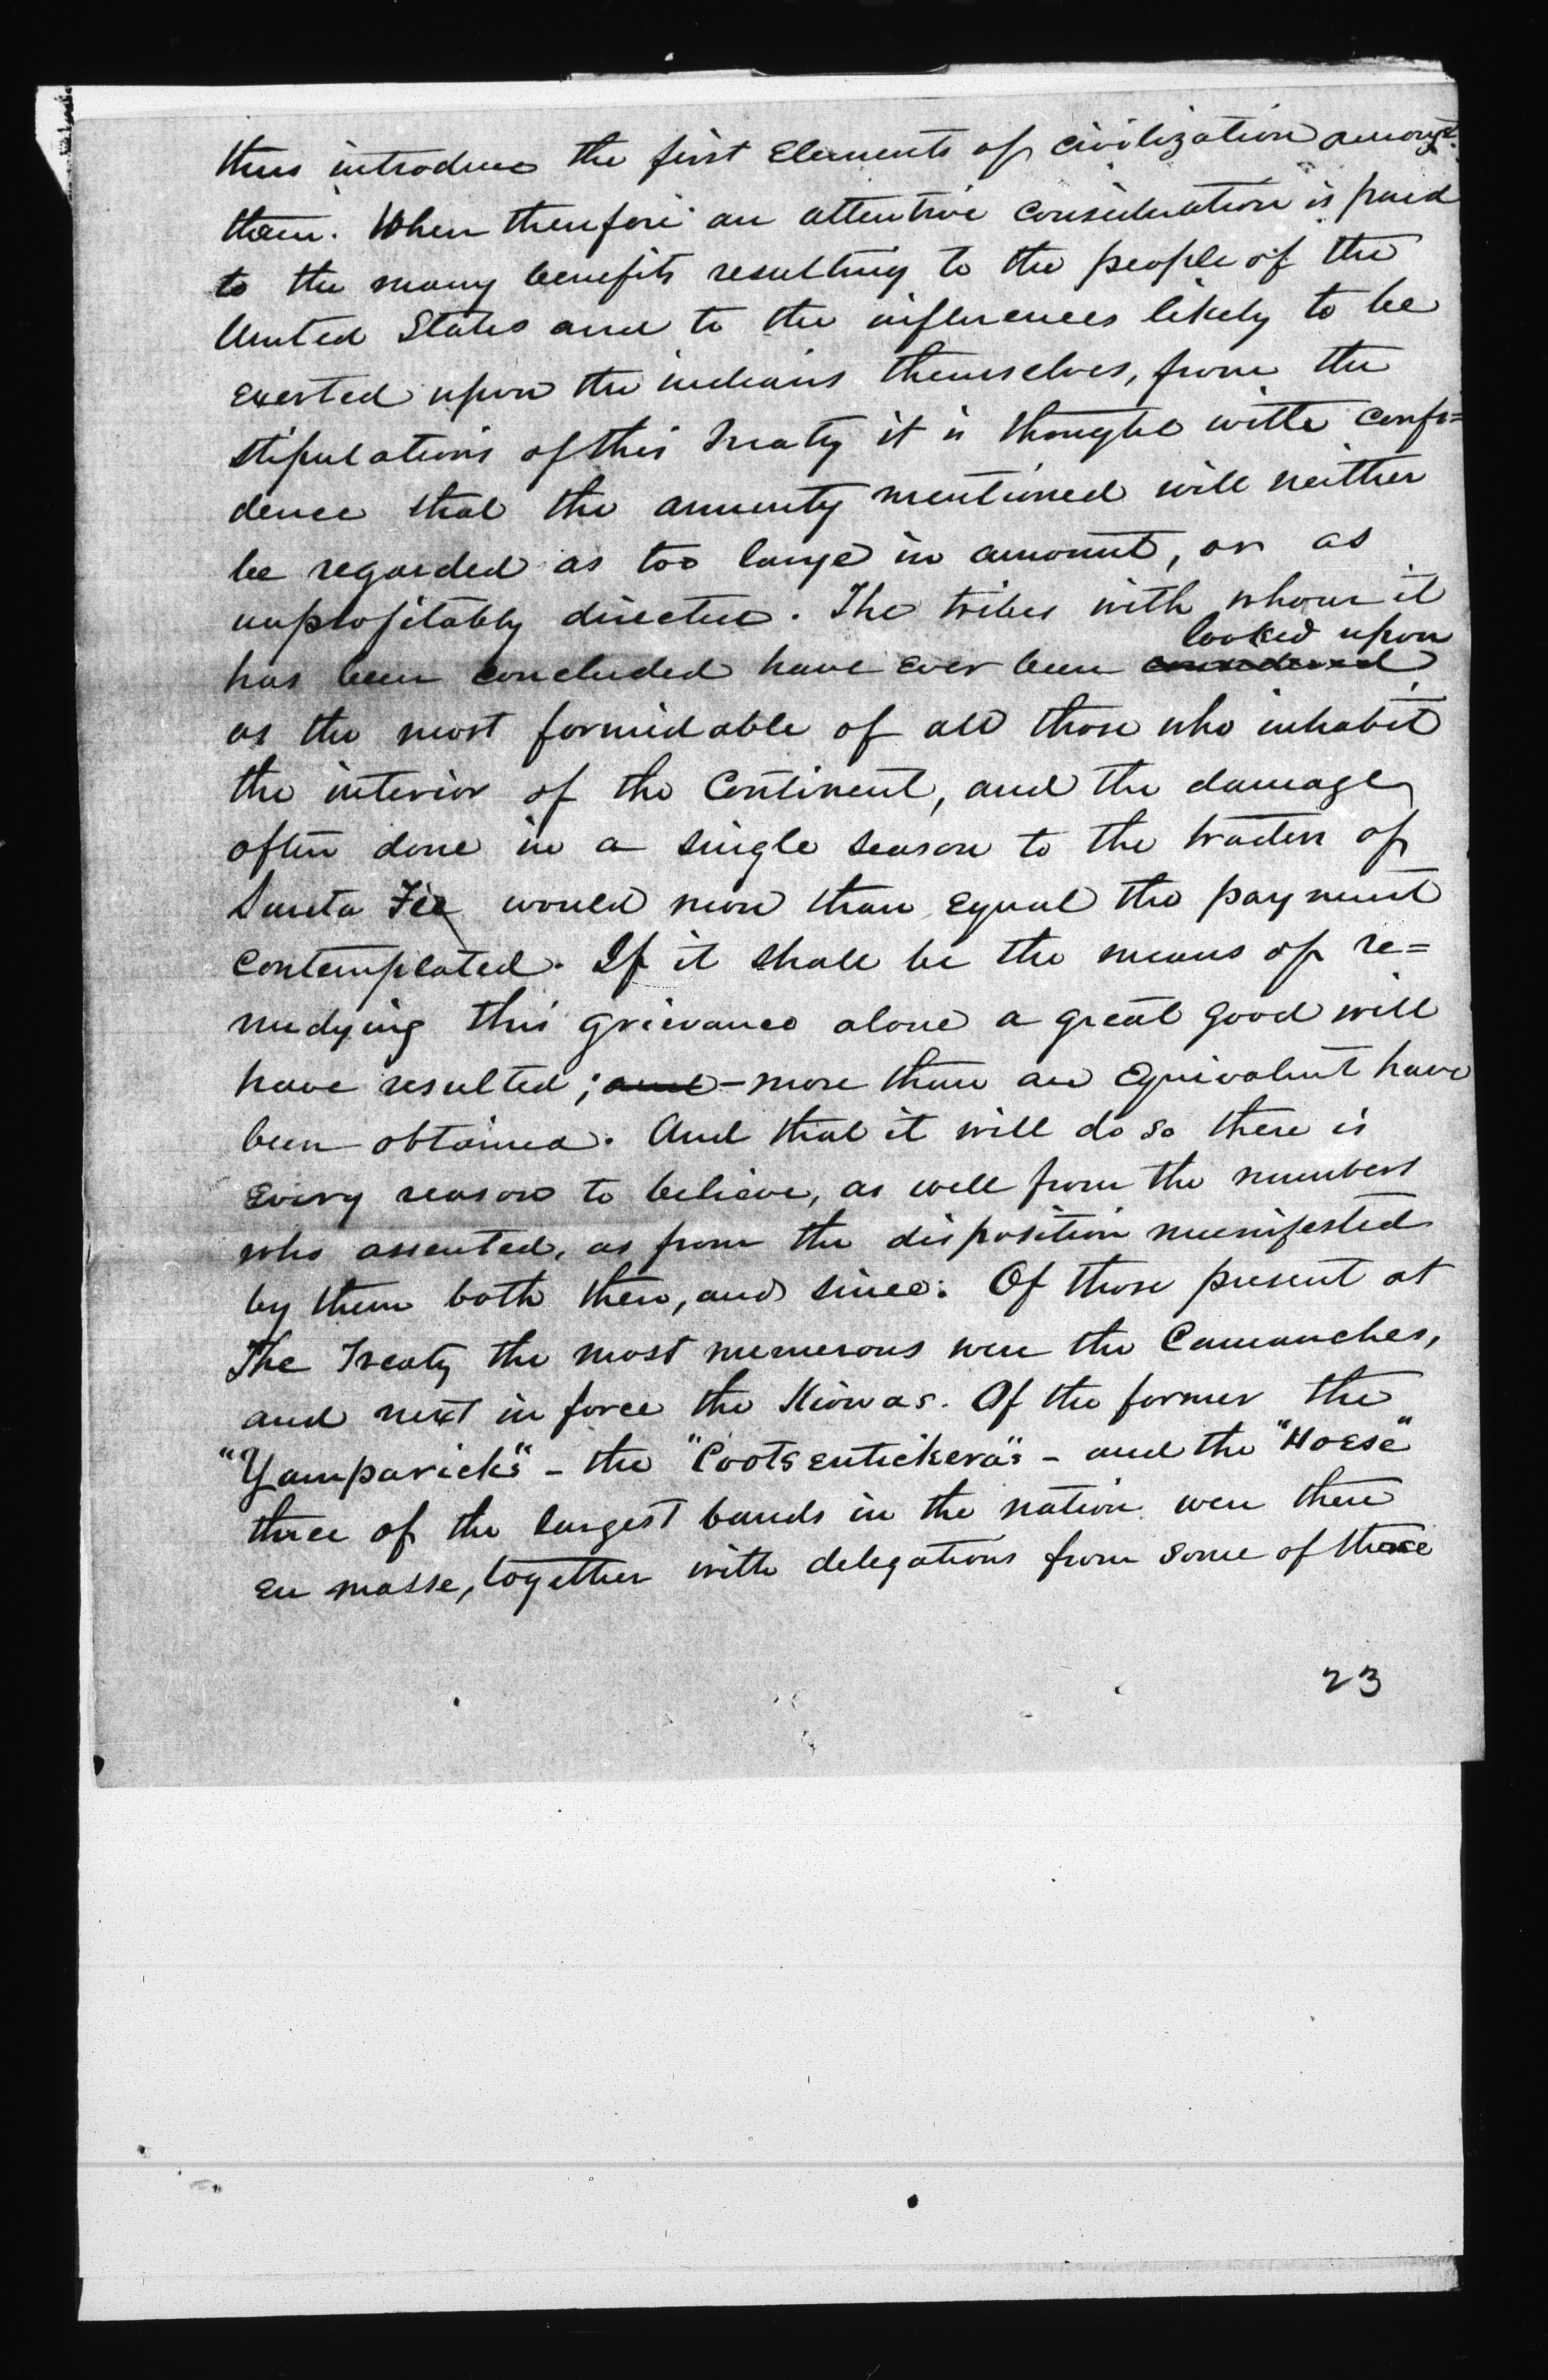 thus introduce the first Elements of civilization amongst
them. When therefore an attentive consideration is paid
to the many benefits resulting to the people of the
United States and to the influences likely to be
exerted upon the indians themselves, from the
stipulations of this Treaty it is thought with confi=
dence that the annuity mentioned will neither
be regarded as too large in amount, or as
unprofitably directed. The tribes with whom it
looked upon
has been concluded have ever been considered
as the most formidable of all those who inhabit
the interior of the Continent, and the damage
often done in a single season to the traders of
Santa Fee would more than equal the payment
contemplated. If it shall be the means of re=
medying this grievance alone a great good will
have resulted; and - more than an Equivalent have
been obtained. And that it will do so there is
Every reason to believe, as well from the numbers
who assented, as from the disposition manifested
by them both then, and since. Of those present at
The Treaty the most numerous were the Camanches,
and next in force the Kiowas. Of the former the
"Yamparick's" - the "Cootsentickera's" - and the "Hoese"
three of the largest bands in the nation were there
en masse, together with delegations from some of those
23